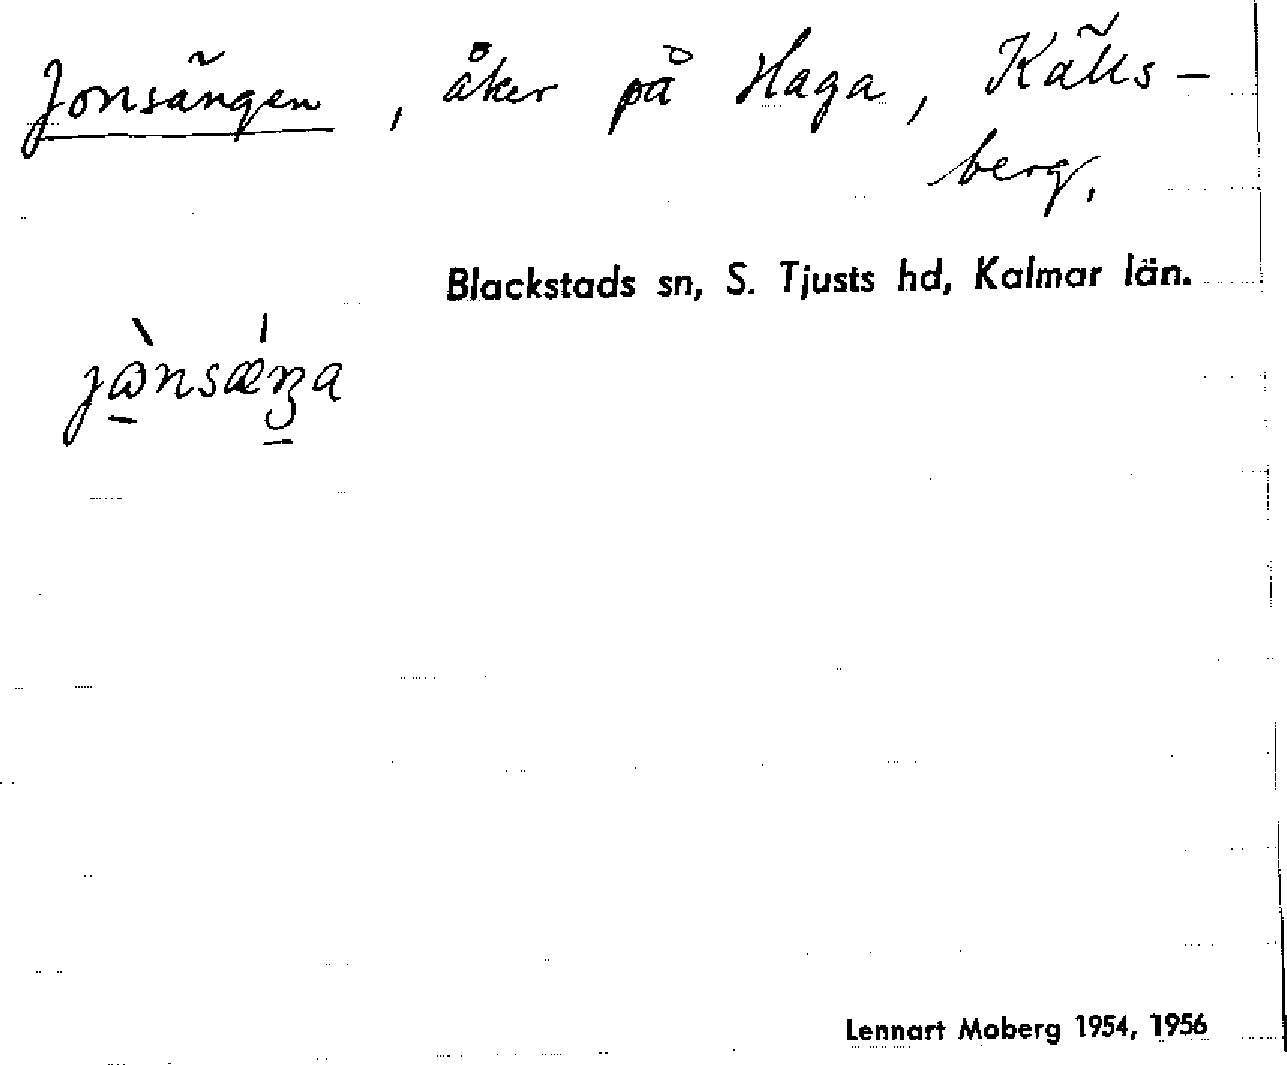 Jonsängen, åker på Haga, Källs-
berg,
Blackstads sn, S. Tjusts hd, Kalmar län.
Lennart Moberg 1954, 1956